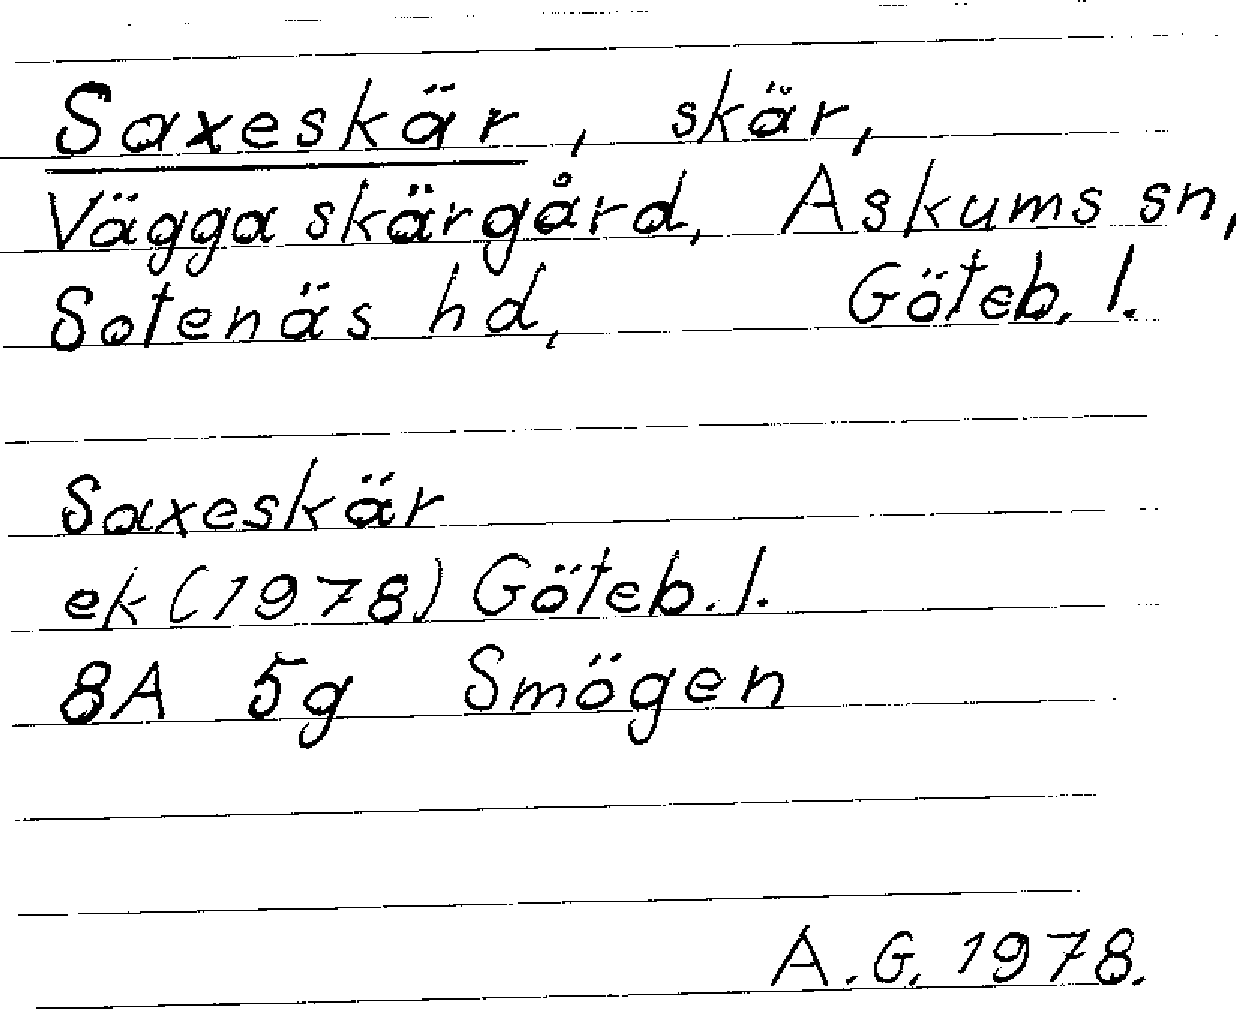 Saxeskär, skär,
Vägga skärgård, Askums sn,
Sotenäs hd, Göteb. l.
Saxeskär
ek (1978) Göteb. l.
8A 5g Smögen
A.G. 1978.